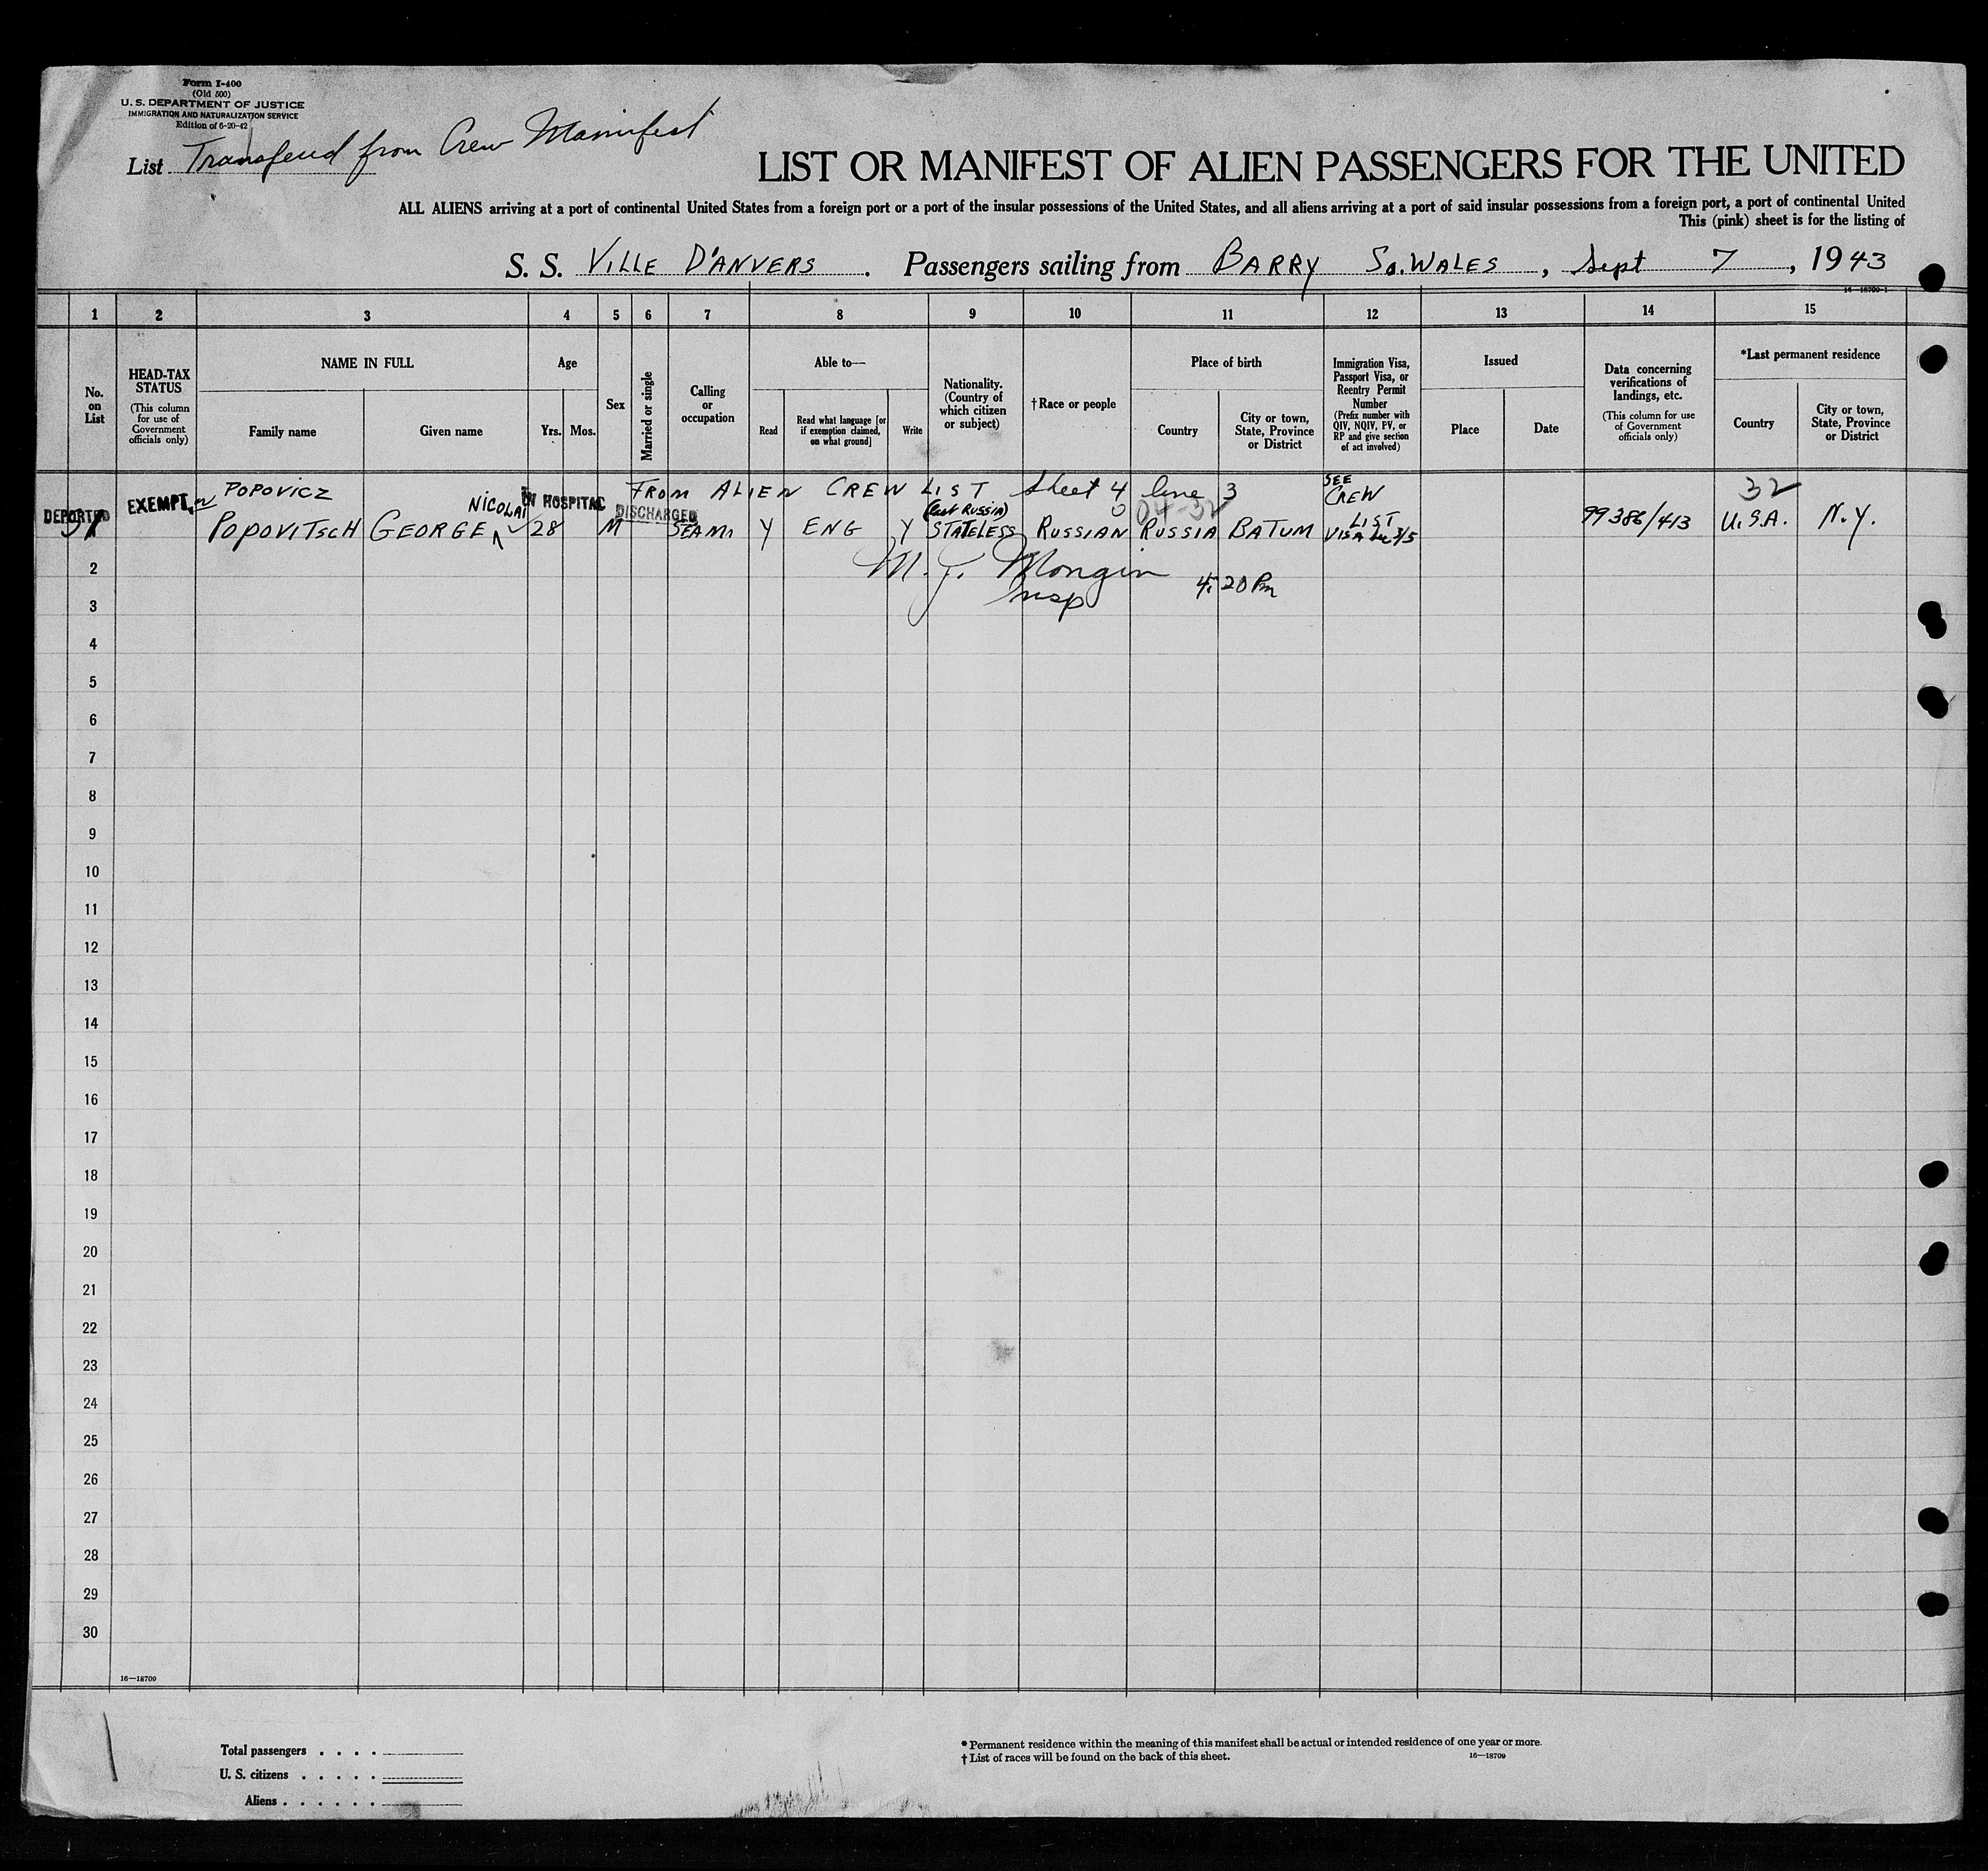 Form I-400
(Old 500)
U. S. DEPARTMENT OF JUSTICE
IMMIGRATION AND NATURALIZATION SERVICE
Edition of 6-20-42
List Transferd from Crew Manifest
LIST OR MANIFEST OF ALIEN PASSENGERS FOR THE UNITED
ALL ALIENS arriving at a port of continental United States from a foreign port or a port of the insular possessions of the United States, and all aliens arriving at a port of said insular possessions from a foreign port, a port of continental United
This (pink) sheet is for the listing of
S. S. VILLE D'ANVERS . Passengers sailing from BARRY So. WALES , Sept 7 , 1943
16—18709-1
1 2 3 4 5 6 7 8 9 10 11 12 13 14 15
No. on List
HEAD-TAX STATUS
(This column for use of Government officials only)
NAME IN FULL
Family name
Given name
Age
Yrs.
Mos.
Sex
Married or single
Calling or occupation
Able to—
Read
Read what language [or if exemption claimed, on what ground]
Write
Nationality. (Country of which citizen or subject)
†Race or people
Place of birth
Country
City or town, State, Province or District
Immigration Visa, Passport Visa, or Reentry Permit Number
(Prefix number with QIV, NQIV, PV, or RP and give section of act involved)
Issued
Place
Date
Data concerning verifications of landings, etc.
(This column for use of Government officials only)
*Last permanent residence
Country
City or town, State, Province or District
POPOVICZ FROM ALIEN CREW LIST Sheet 4 line 3 SEE CREW LIST 32
DEPORTED EXEMPT NICOLAI IN HOSPITAL DISCHARGED (last RUSSIA) 04-32
1 POPOVITSCH GEORGE 28 M SEAM Y ENG Y STATELESS RUSSIAN RUSSIA BATUM VISA 3/5 99386/413 U.S.A. N.Y.
M. J. Mongin
Insp 4:20 Pm
2
3
4
5
6
7
8
9
10
11
12
13
14
15
16
17
18
19
20
21
22
23
24
25
26
27
28
29
30
16—18709
Total passengers . . . .
U. S. citizens . . . . .
Aliens . . . . . .
* Permanent residence within the meaning of this manifest shall be actual or intended residence of one year or more.
† List of races will be found on the back of this sheet.
16—18709